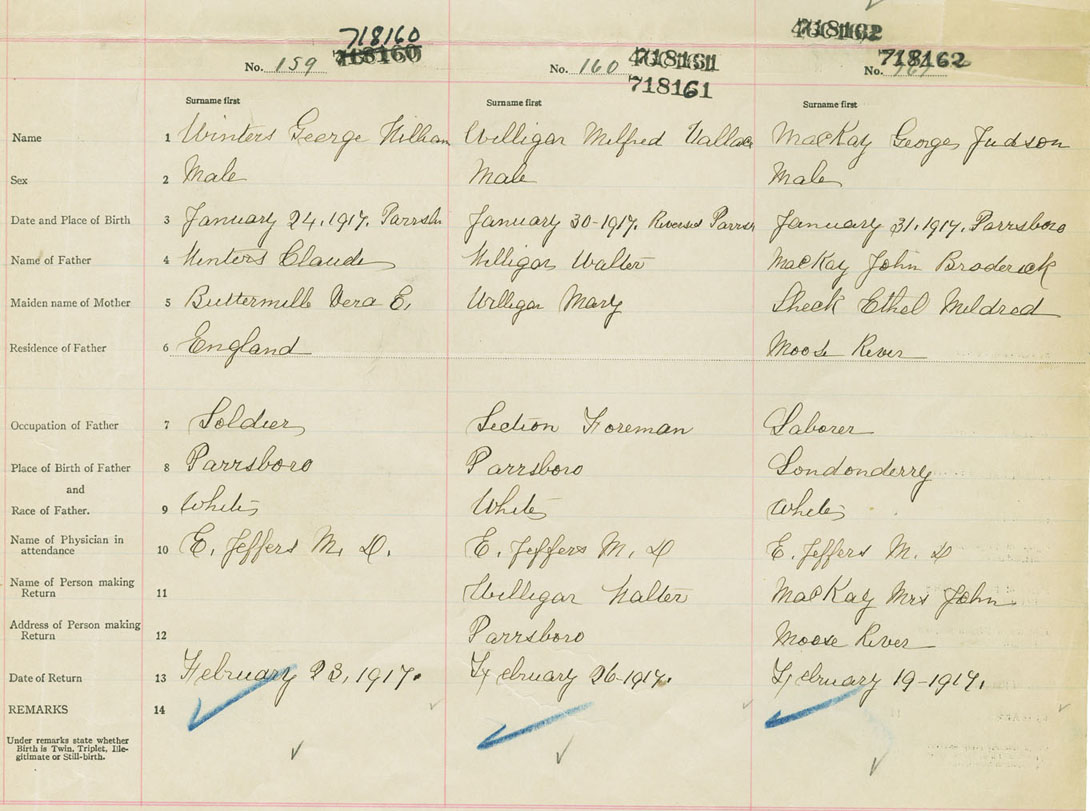 718160
No. 159 718160
No. 160 718161
718161
718162
No. 718162
Surname first Surname first Surname first
Name 1 Winters George William Willigar Milfred Wallace MacKay George Judson
Sex 2 Male Male Male
Date and Place of Birth 3 January 24, 1917, Parrsb January 30-1917. Parrsb January 31, 1917, Parrsboro
Name of Father 4 Winters Claude Willigar Walter MacKay John Broderick
Maiden name of Mother 5 Buttermille Vera E. Willigar Mary Sheck Ethel Mildred
Residence of Father 6 England Moose River
Occupation of Father 7 Soldier Section Foreman Laborer
Place of Birth of Father 8 Parrsboro Parrsboro Londonderry
and
Race of Father. 9 White White White
Name of Physician in
attendance 10 E. Jeffers M. D. E. Jeffers M. D E. Jeffers M. D
Name of Person making
Return 11 Willigar Walter MacKay Mrs John
Address of Person making
Return 12 Parrsboro Moose River
Date of Return 13 February 23, 1917. February 26-1917. February 19-1917.
REMARKS 14
Under remarks state whether
Birth is Twin, Triplet, Ille-
gitimate or Still-birth.